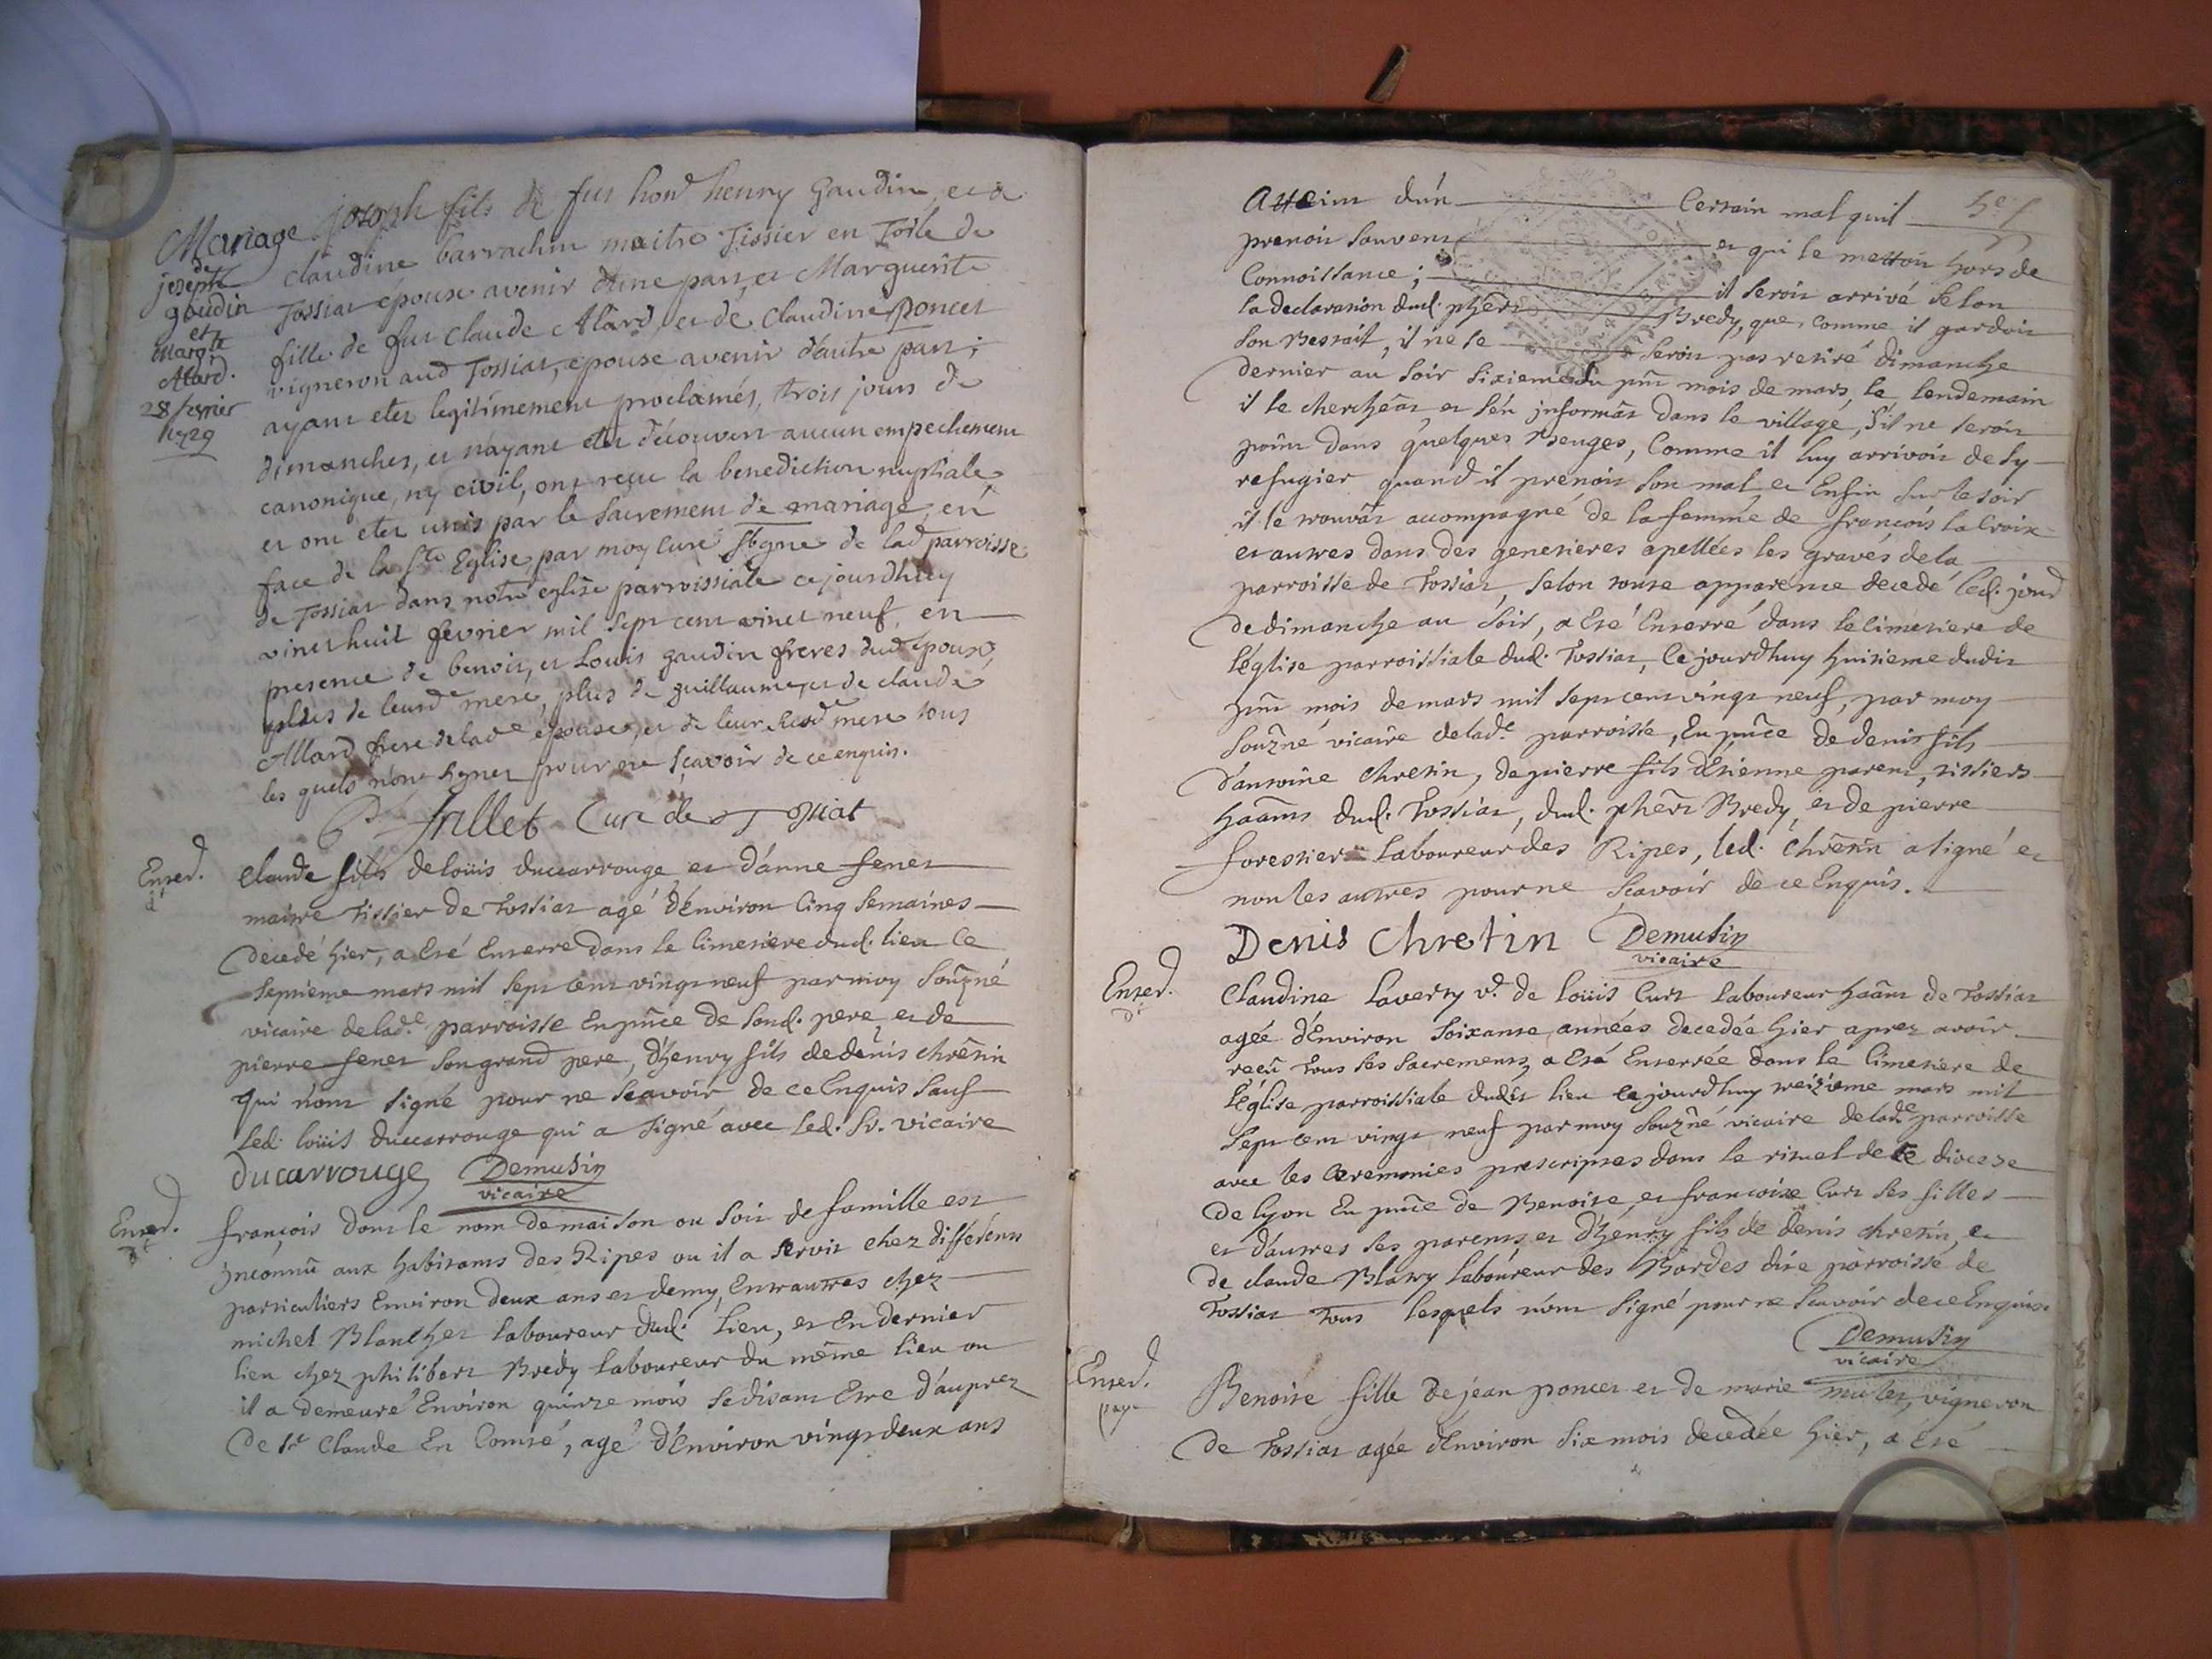 Mariage
de
joseph
gaudin
et
Margte
Alard.
28 fevrier
1729
joseph fils de fut hond henry Gaudin, et de
claudine barrachin maitre Tissier en Toile de
Tossiat époux avenir d'une part, et Marguerite
fille de fut claude Alard, et de claudine Poncet
vigneron aud Tossiat, epouse avenir d'autre part;
ayant etez legitimement proclamés, trois jours de
dimanches, et n'ayant etez découvert aucun empechement
canonique, ny civil, ont reçu la benediction nuptiale
et ont etez unis par le sacrement de mariage, en
face de la Ste Eglise, par moy curé ssigné de lad parroisse
de Tossiat dans notre eglise parroissiale ce jourdhuy
vinct huit fevrier mil sept cent vinct neuf, en
presence de benoit, et Louis gaudin freres dud époux,
plus de leurd mere, plus de guillaume, et de claude
Allard frere de lade épouse, et de leur mere tous
les quels n'ont signez pour ne sçavoir de ce enquis.
Jullet Curé de Tossiat
Enterd.
dt
Claude fils de loüis ducarrouge et d'anne fenet
maitre tissier de tossiat agé d'environ Cinq semaines
decedé hier, a esté Enterre dans le Cimetiere dud. lieu Ce
septieme mars mil sept cent vingt neuf par moy souzné
vicaire de lad.e parroisse En pñce de sond. pere, et de
pierre fenet son grand pere, d'henry fils de denis chrêtin
qui n'ont signé pour ne scavoir de ce Enquis sauf
led. loüis ducarrouge qui a signé avec led. Sr. vicaire
ducarrouge Demusin
vicaire
Enterd.
dt
françois dont le nom de maison ou soit de famille est
jnconnû aux habitants des Ripes ou il a servit chez différents
particuliers Environ deux ans et demy, Entr'autres chez
michel Blanchet laboureur dud. lieu, et En dernier
lieu chez philibert Bredy laboureur du même lieu ou
il a demeuré Environ quinze mois se disant Etre d'auprez
de St Claude En Comté, agé d'Environ vingt deux ans
atteint d'un Certain mal quil
prenoit souvent et qui le mettoit hors de
Connoissance; il seroit arrivé selon
la declaration dud. phert Bredy, que, comme il gardoit
son Bestail, il ne se seroit pas retiré dimanche
dernier au soir sixieme du pnt mois de mars, le lendemain
il le cherchéat et s'en jnformât dans le village, s'il ne seroit
point dans quelques granges, Comme il luy arrivoit de sy
refugier quand il prenoit son mal, et Enfin sur le soir
il le trouvât accompagné de la femme de françois la Croix
et autres dans des genetieres apellées les gravés de la
parroisse de Tossiat, selon toute apparence decedé led. jour
de dimanche au soir, a eté Enterré dans le Cimetiere de
l'église parroissiale dud. Tossiat, Ce jourdhuy huitieme dudit
pnt mois de mars mil sept cent vingt neuf, par moy
souzné vicaire de lad.e parroisse, En pñce de denis fils
d'antoine chretin, de pierre fils d'Etienne parent, tissiers
haânts dud. Tossiat, dud. phert Bredy, et de pierre
forestier laboureur des Ripes, led. Chrêtin a signé et
non les autres pour ne scavoir de ce Enquis.
Denis Chretin Demusin
vicaire
Enterd.
dt
Claudine Laverty vd. de loüis Curt laboureur haânt de Tossiat
agée d'Environ soixante années decedée hier aprez avoir
reçû tous ses sacrements, a Esté Enterrée dans le Cimetiere de
l'église parroissiale dudit lieu Ce jourdhuy treizieme mars mil
sept cent vingt neuf par moy souzné vicaire de lad.e parroisse
avec les Ceremonies prescriptes dans le rituel de ce diocese
de lyon En pñce de Benoite, et françoise Curt ses filles
et d'autres ses parents, et d'henry fils de denis chretin, et
de claude Blatry laboureur des Bordes dite parroisse de
Tossiat tous lesquels n'ont signé pour ne scavoir de ce Enquis.
Demusin
vicaire
Enterd.
Benoite fille de jean poncet et de marie mulet, vigneron
de Tossiat agée d'Environ six mois decedée hier, a été